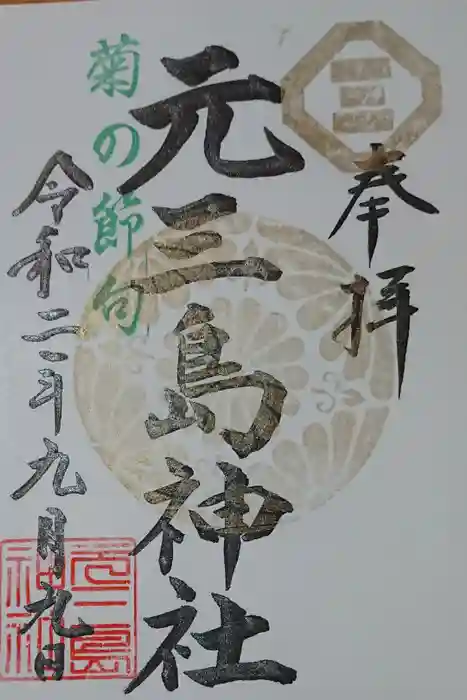 奉拝
元三島神社
菊の節句
令和二年九月九日
元三島
神社